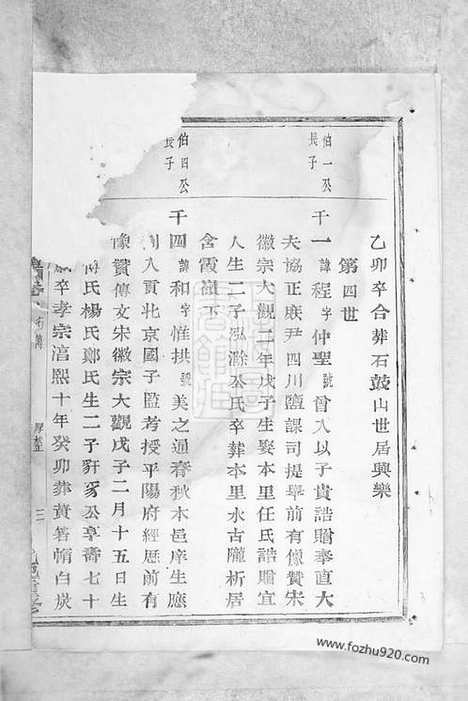 乙卯卒合葬石鼓山世居興樂
第四世
伯一公長子
千一諱程字仲聖號曾入以子貴誥贈奉直大
夫協正庶尹四川鹽課司提舉前有像贊宋
徽宗大觀二年戊子生娶本里任氏誥贈宜
人生二子泓滁公氏卒葬本里水古隴析居
含霞嶺下
伯四公長子
千四諱和字惟拱號美之通春秋本邑庠生應
入貢北京國子監考授平陽府經歷前有
像贊傳文宋徽宗大觀戊子二月十五日生
氏楊氏鄭氏生二子豣豸公享壽七十
歲卒孝宗淳熙十年癸卯葬黃箬㡌白炭
三
www.fozhu920.com